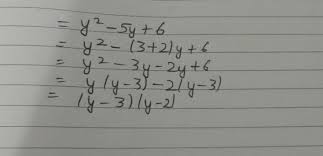 = y² - 5y + 6
= y² - (3+2)y + 6
= y² - 3y - 2y + 6
= y (y-3) - 2(y-3)
= (y-3)(y-2)